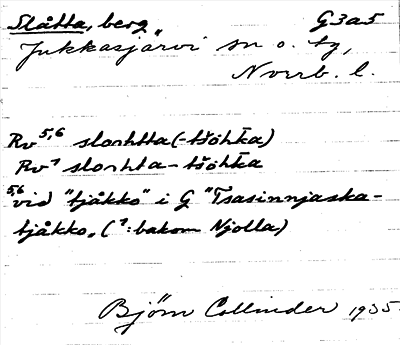 Slåtta, berg G3a5
Jukkasjärvi sn o. tg,
Norrb. l.
Rv⁵,⁶ slåhtta (-tšåhkka)
Rv⁷ slåhtta-tšåhkka
⁵,⁶ vid "tjåkko" i G "Tsasinnjaska-
tjåkko„ (⁷: bakom Njolla)
Björn Collinder 1935.